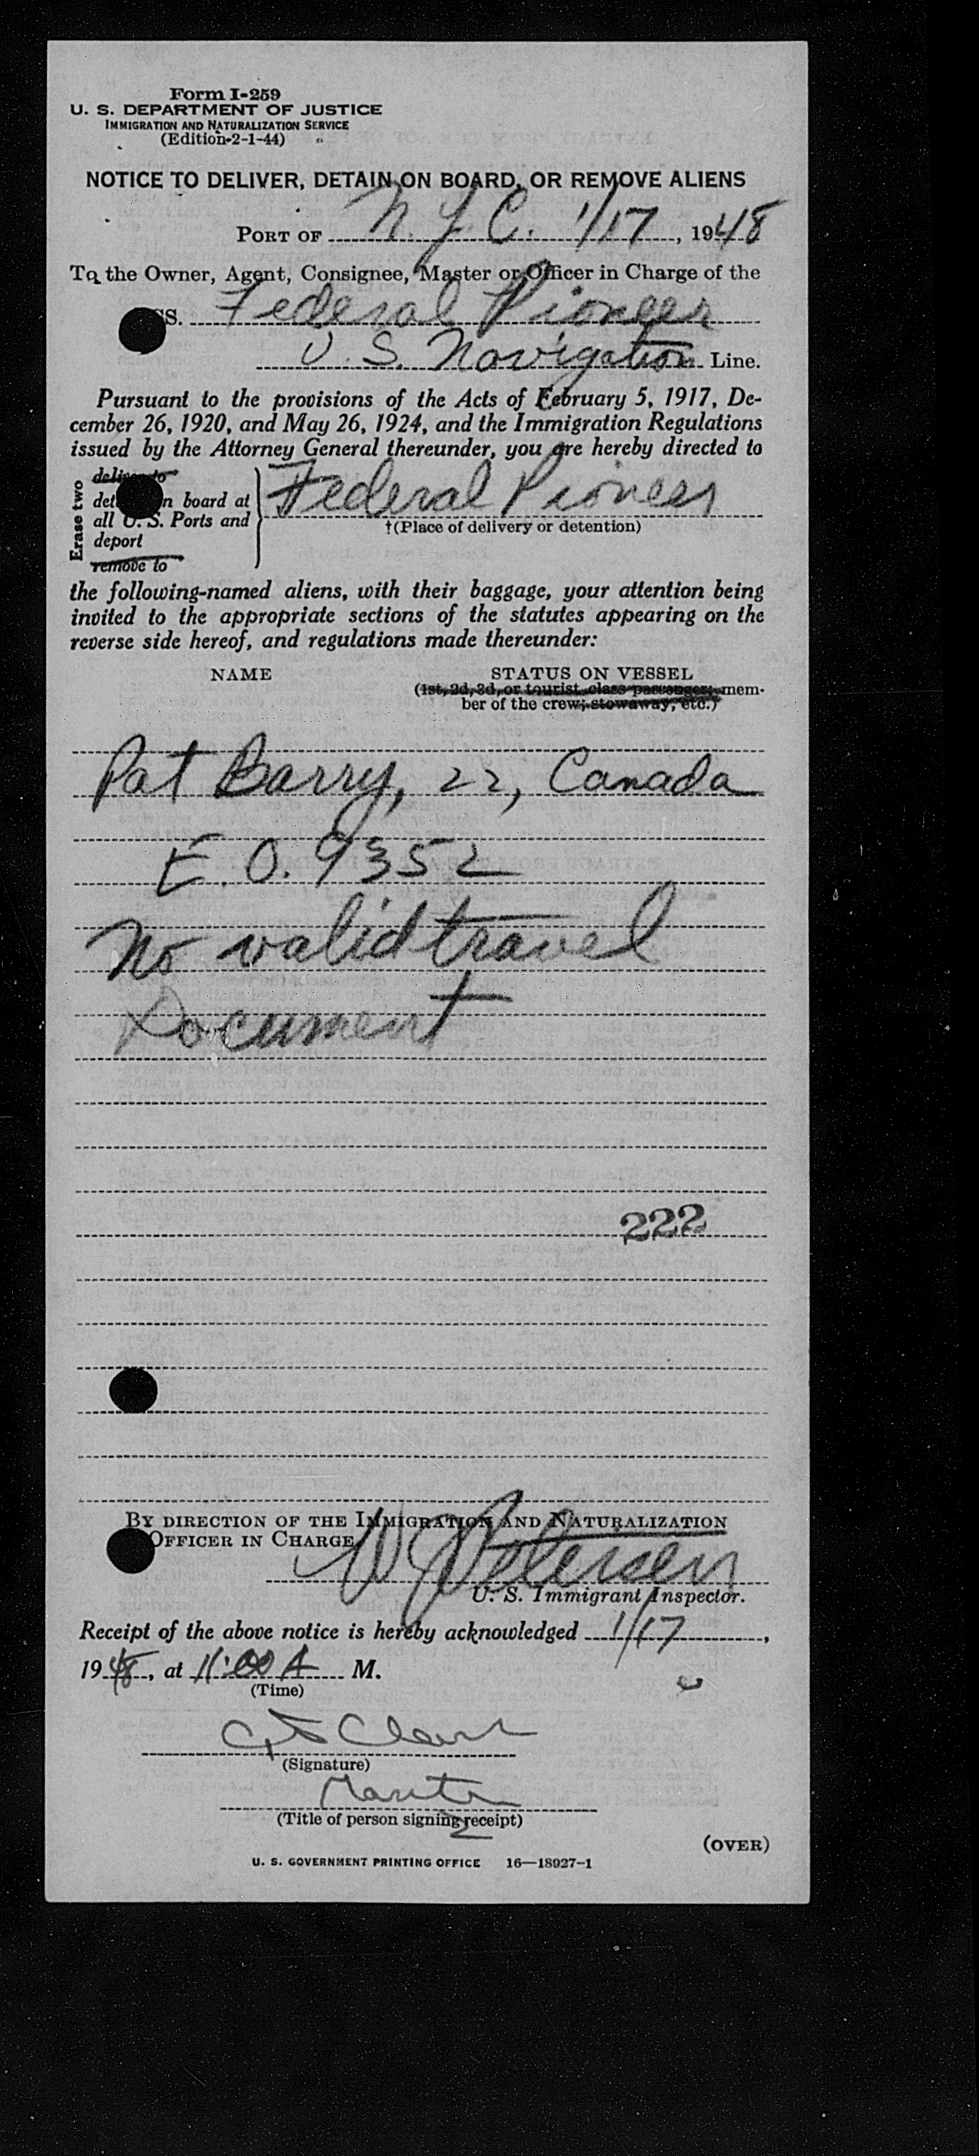 Form I-259
U. S. DEPARTMENT OF JUSTICE
IMMIGRATION AND NATURALIZATION SERVICE
(Edition-2-1-44)
NOTICE TO DELIVER, DETAIN ON BOARD, OR REMOVE ALIENS
PORT OF N. Y. C. 1/17, 1948
To the Owner, Agent, Consignee, Master or Officer in Charge of the
SS. Federal Pioneer
U. S. Navigation Line.
Pursuant to the provisions of the Acts of February 5, 1917, De-
cember 26, 1920, and May 26, 1924, and the Immigration Regulations
issued by the Attorney General thereunder, you are hereby directed to
Erase two
deliver to
det n board at
all U. S. Ports and
deport
remove to
Federal Pioneer
†(Place of delivery or detention)
the following-named aliens, with their baggage, your attention being
invited to the appropriate sections of the statutes appearing on the
reverse side hereof, and regulations made thereunder:
NAME STATUS ON VESSEL
(1st, 2d, 3d, or tourist class passenger; mem-
ber of the crew; stowaway, etc.)
Pat Barry, 22, Canada
E. O. 9352
No valid travel
Document
222
BY DIRECTION OF THE IMMIGRATION AND NATURALIZATION
OFFICER IN CHARGE
W J Petersen
U. S. Immigrant Inspector.
Receipt of the above notice is hereby acknowledged 1/17,
1948, at 11:00 A M.
(Time)
Clark
(Signature)
Master
(Title of person signing receipt)
(OVER)
U. S. GOVERNMENT PRINTING OFFICE 16—18927-1